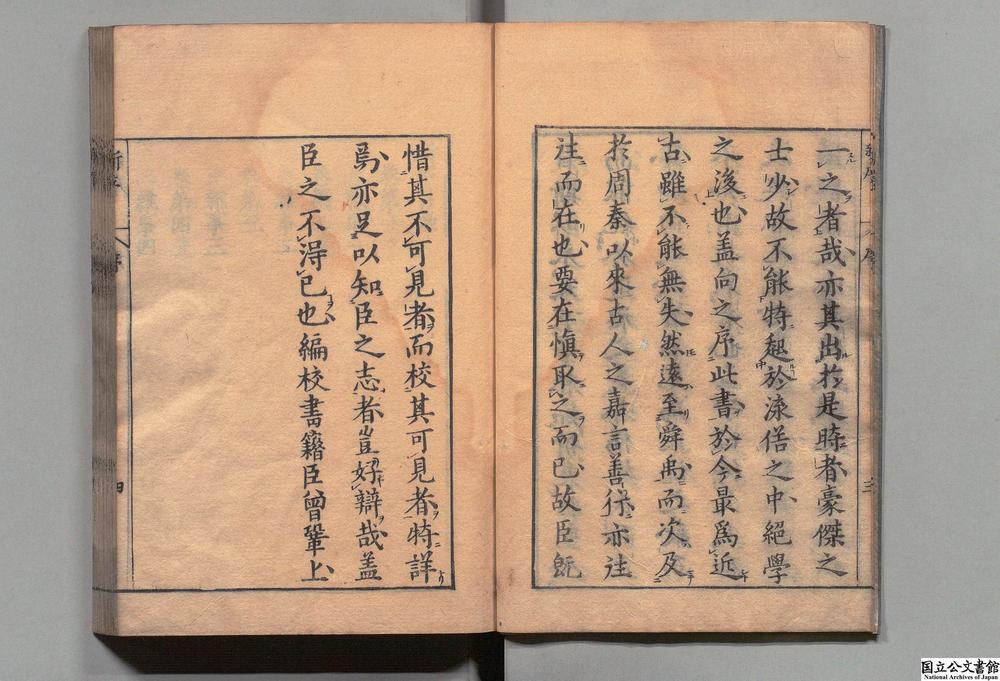 一之者哉亦其出於是時者豪傑之
士少故不能特起於流俗之中絕學
之後也盖向之序此書於今最爲近
古雖不能無失然遠至舜禹而次及
於周秦以來古人之嘉言善行亦往
往而在也要在慎取之而已故臣既
惜其不可見者而校其可見者特詳
焉亦足以知臣之志者豈好辯哉盖
臣之不得已也編校書籍臣曾鞏上
三
四
国立公文書館
National Archives of Japan